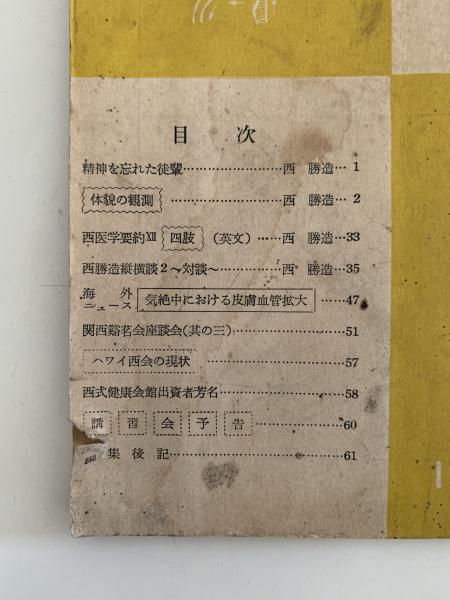 目次
精神を忘れた徒輩……………………西 勝造… 1
体貌の観測……………………西 勝造… 2
西医学要約Ⅻ 四肢 (英文)……西 勝造…33
西勝造縦横談2～対談～…………西 勝造…35
海外ニュース 気絶中における皮膚血管拡大……47
関西谿茗会座談会(其の三)……………………51
ハワイ西会の現状……………………57
西式健康会館出資者芳名……………………58
講習会予告……………………60
集後記……………………61